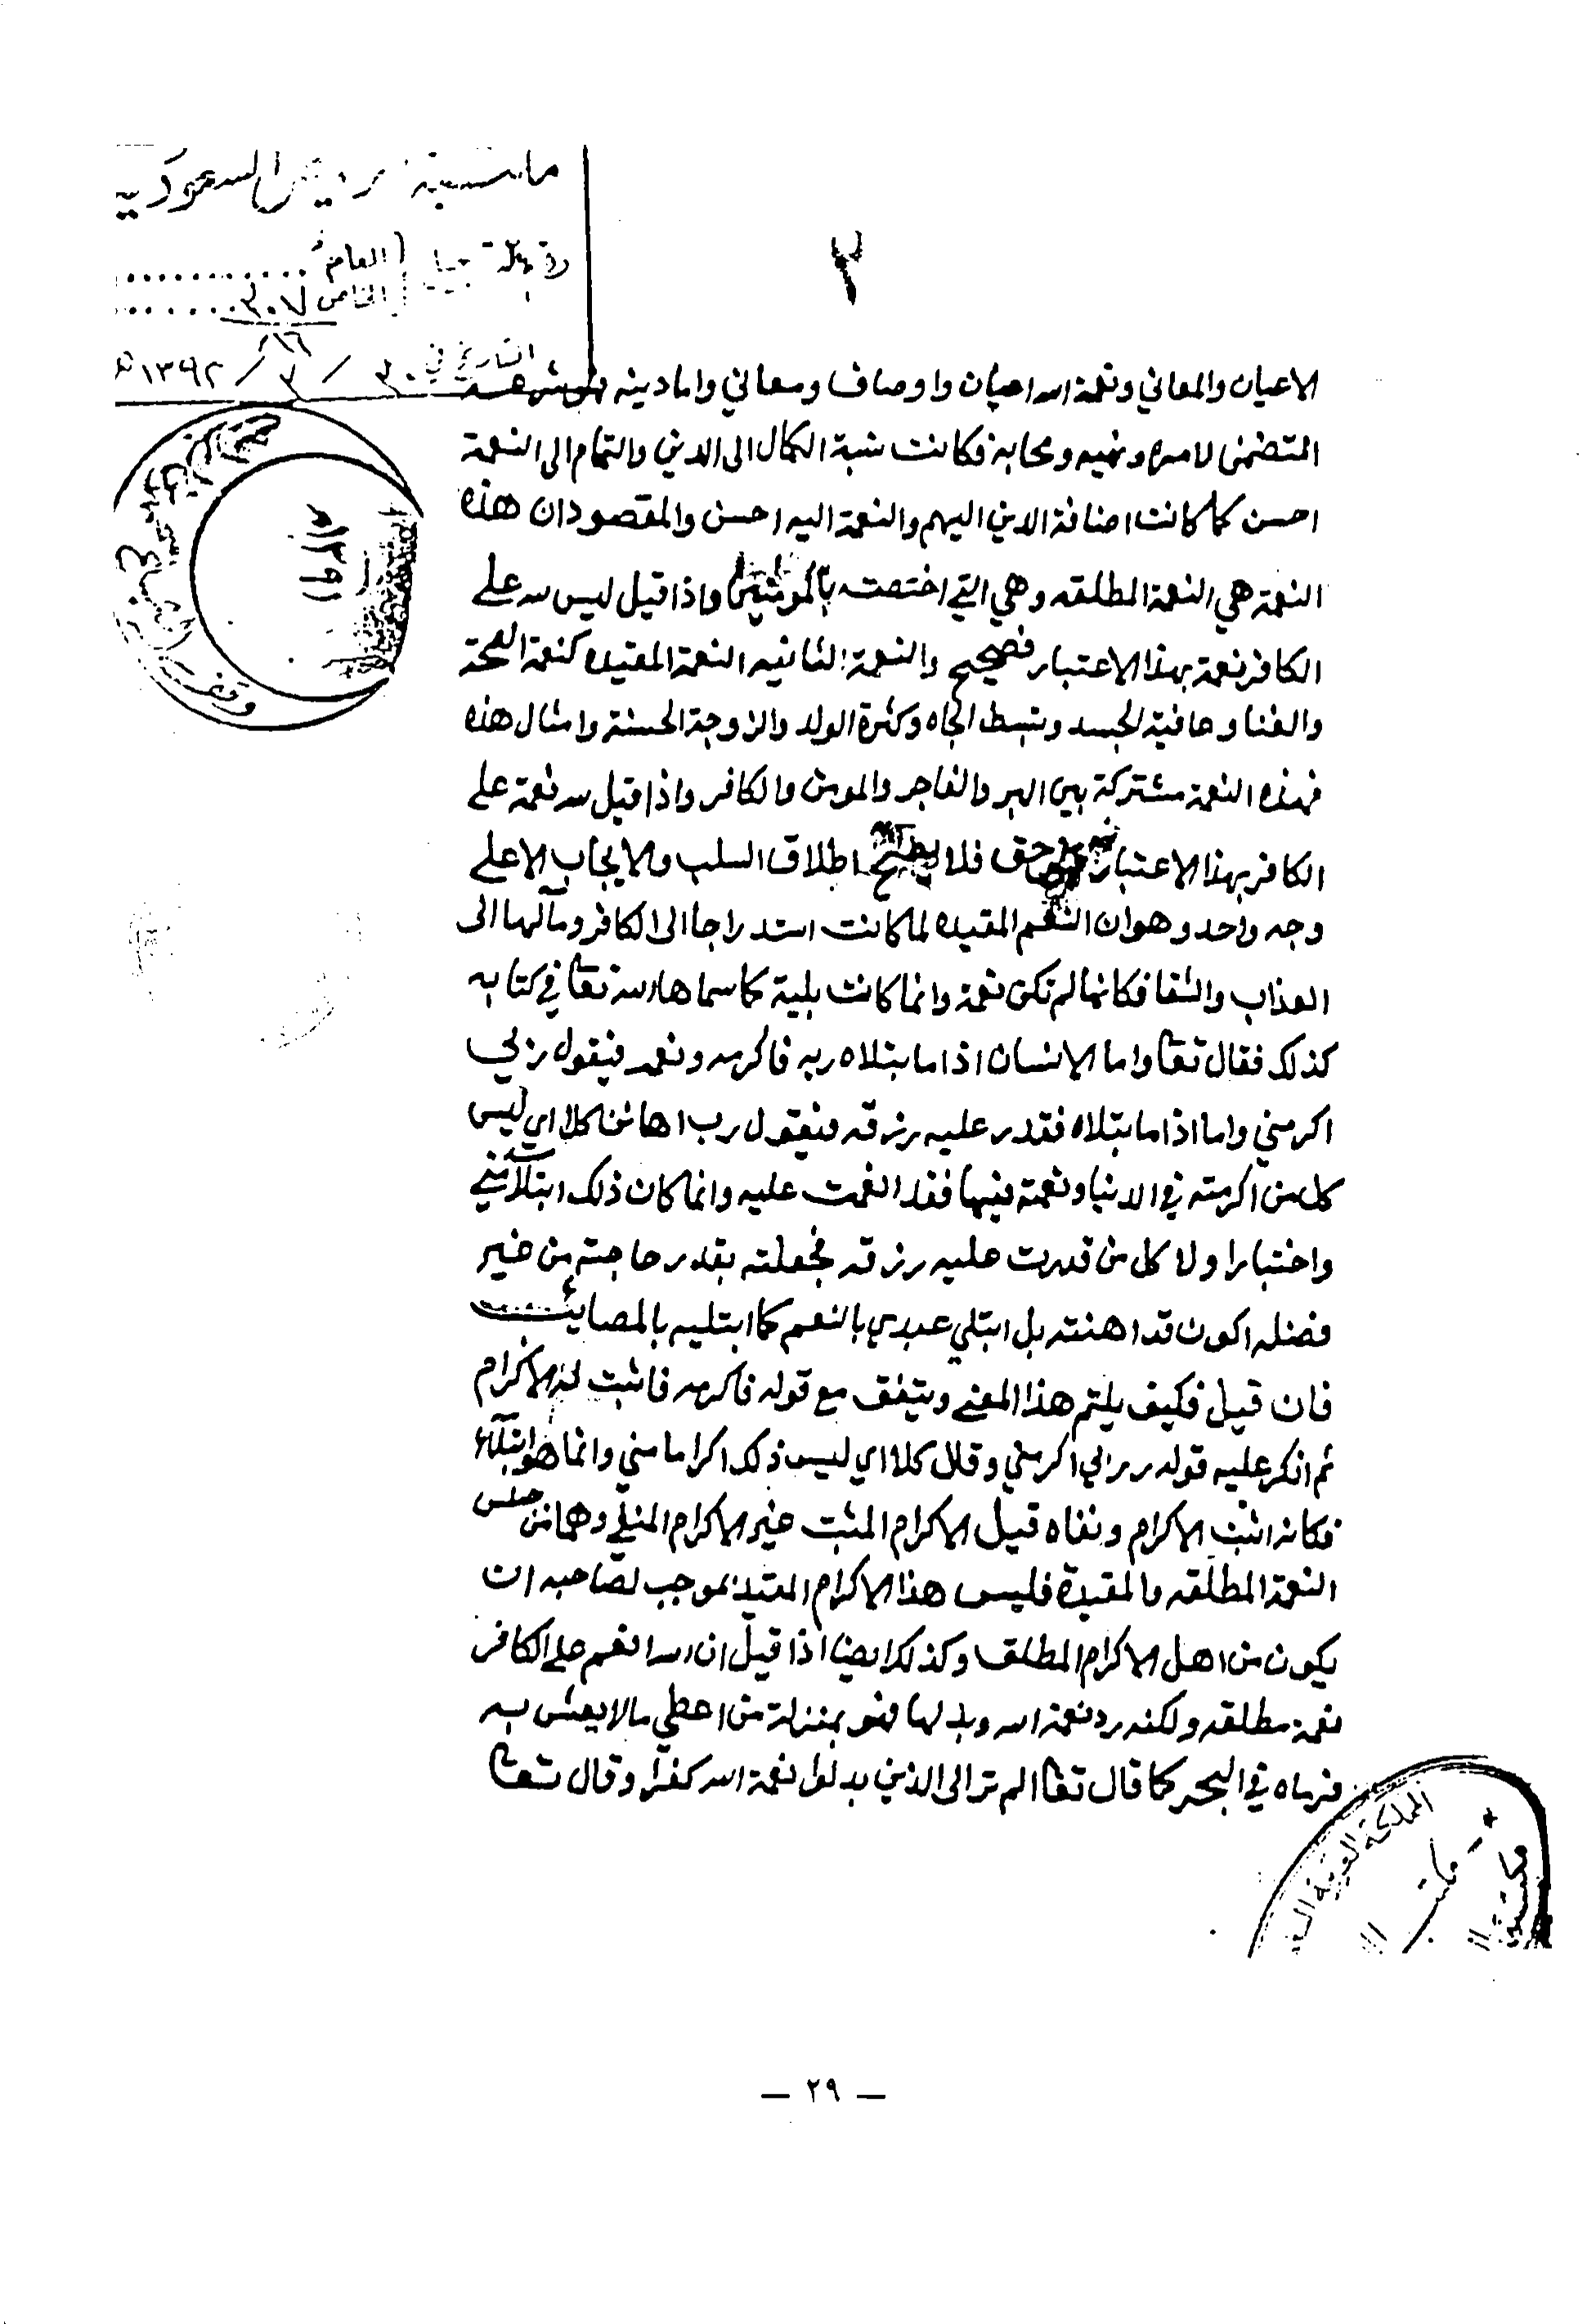 السعودية
العام
الخاص ٣٠٧
التاريخ في ٣٠ / ٧ / ١٣٩٢ ه
١٦
٢
١٣٩١
الاعيان والمعاني ونعمة الله اعيان واوصاف ومعاني واما دينه فهو شرعه
المتضمن لامره ونهيه ومحابه فكانت نسبة الكمال الى الدين والتمام الى النعمة
احسن كما كانت اضافة الدين اليهم والنعمة اليه احسن والمقصود ان هذه
النعمة هي النعمة المطلقه وهي التي اختصت بالمومنين واذا قيل ليس لله على
الكافر نعمة بهذا الاعتبار فصحيح والنعمة الثانيه النعمة المقيده كنعمة الصحة
والغنا وعافية الجسد وتبسط الجاه وكثرة الولد والزوجة الحسنة وامثال هذه
فهذه النعمة مشتركة بين البر والفاجر والمومن والكافر واذا قيل لله نعمة على
الكافر بهذا الاعتبار فهو حق فلا يصح اطلاق السلب والايجاب الا على
وجه واحد وهو ان النعم المقيده لما كانت استدراجا الى الكافر ومآلها الى
العذاب والشقا فكانها لم تكن نعمة وانما كانت بلية كما سماها الله تعا في كتابه
كذلك فقال تعا واما الانسان اذا ما ابتلاه ربه فاكرمه ونعمه فيقول ربي
اكرمني واما اذا ما ابتلاه فقدر عليه رزقه فيقول رب اهانن كلا اي ليس
كل من اكرمته في الدنيا ونعمته فيها فقد انعمت عليه وانما كان ذلك ابتلاء مني
واختبارا ولا كل من قدرت عليه رزقه فجعلته بقدر حاجته من غير
فضله اكون قد اهنته بل ابتلي عبدي بالنعم كما ابتليه بالمصائب
فان قيل فكيف يلتم هذا المعنى ويتفق مع قوله فاكرمه فاثبت له الاكرام
ثم انكر عليه قوله ربي اكرمني وقال كلا اي ليس ذلك اكراما مني وانما هو ابتلاء
فكانه اثبت الاكرام ونفاه قيل الاكرام المثبت غير الاكرام المنفي وهما من جنس
النعمة المطلقه والمقيدة فليس هذا الاكرام المقيد بموجب لصاحبه ان
يكون من اهل الاكرام المطلق وكذلك ايضا اذا قيل ان الله انعم على الكافر
نعمة مطلقه ولكنه رد نعمة الله وبدلها فهو بمنزلة من اعطي مالا يعيش به
فرماه في البحر كما قال تعا الم تر الى الذين بدلوا نعمة الله كفرا وقال تعا
المملكة العربية
مكتبة
— ٢٩ —